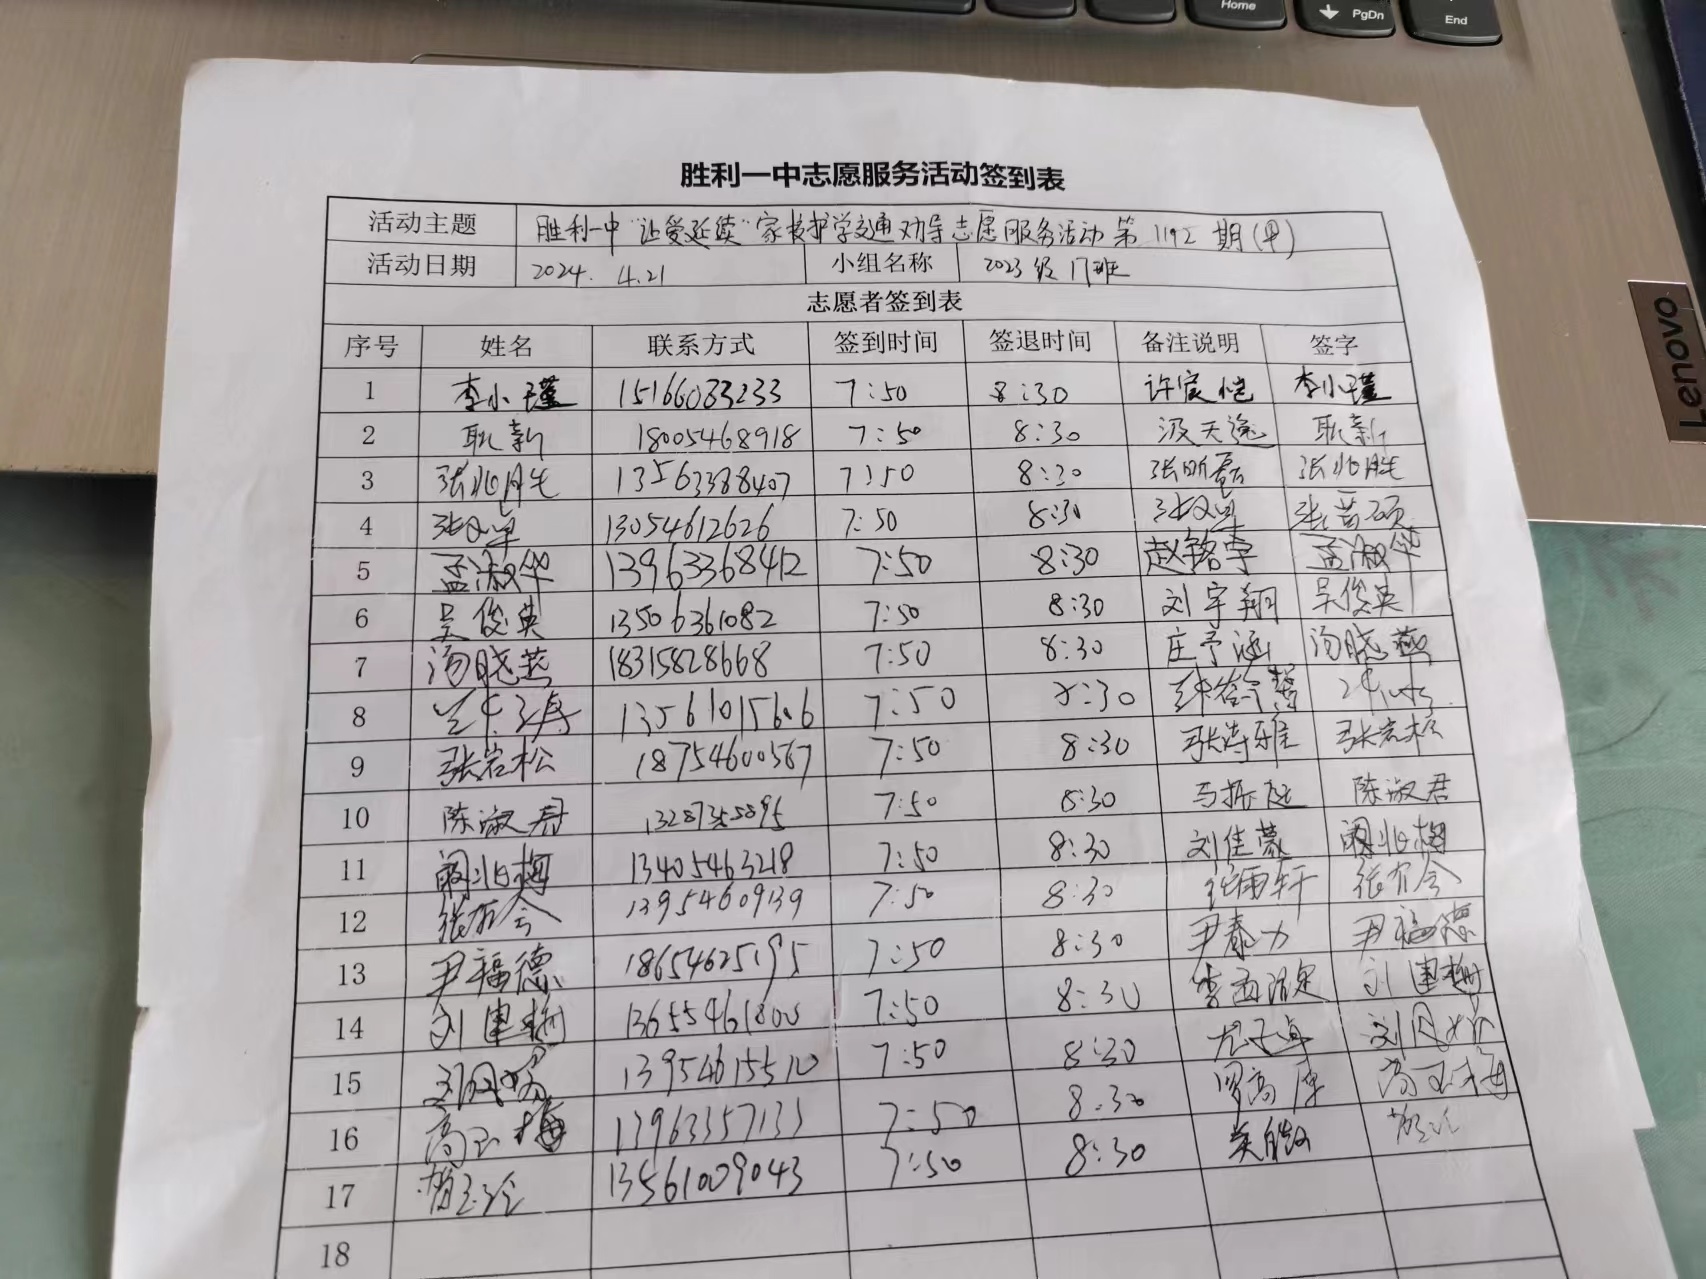 Home
PgDn
End
Lenovo
胜利一中志愿服务活动签到表
活动主题 胜利一中"让爱延续"家校护学交通劝导志愿服务活动第1192期(早)
活动日期 2024. 4.21 小组名称 2023级17班
志愿者签到表
序号 姓名 联系方式 签到时间 签退时间 备注说明 签字
1 李小瑾 15166083233 7:50 8:30 许宸恺 李小瑾
2 耿新 18005468918 7:50 8:30 汲天逸 耿新
3 张兆胜 13563388407 7:50 8:30 张昕磊 张兆胜
4 13054612626 7:50 8:30
5 孟淑华 13963368412 7:50 8:30 赵铭宇 孟淑华
6 吴俊英 13506361082 7:50 8:30 刘宇翔 吴俊英
7 汤晓燕 18315828668 7:50 8:30 庄予涵 汤晓燕
8 13561015606 7:50 8:30
9 张岩松 18754600567 7:50 8:30 张诗雅 张岩松
10 陈淑君 13287355895 7:50 8:30 马振庭 陈淑君
11 阚兆梅 13405463218 7:50 8:30 刘佳蒙 阚兆梅
12 13954609139 7:50 8:30 张雨轩
13 尹福德 18654625195 7:50 8:30 尹泰力 尹福德
14 刘建梅 13655461800 7:50 8:30 刘建梅
15 13954615510 7:50 8:30 尤子卓
16 高玉梅 13963357133 7:50 8:30 罗高原 高玉梅
17 13561009043 7:50 8:30
18